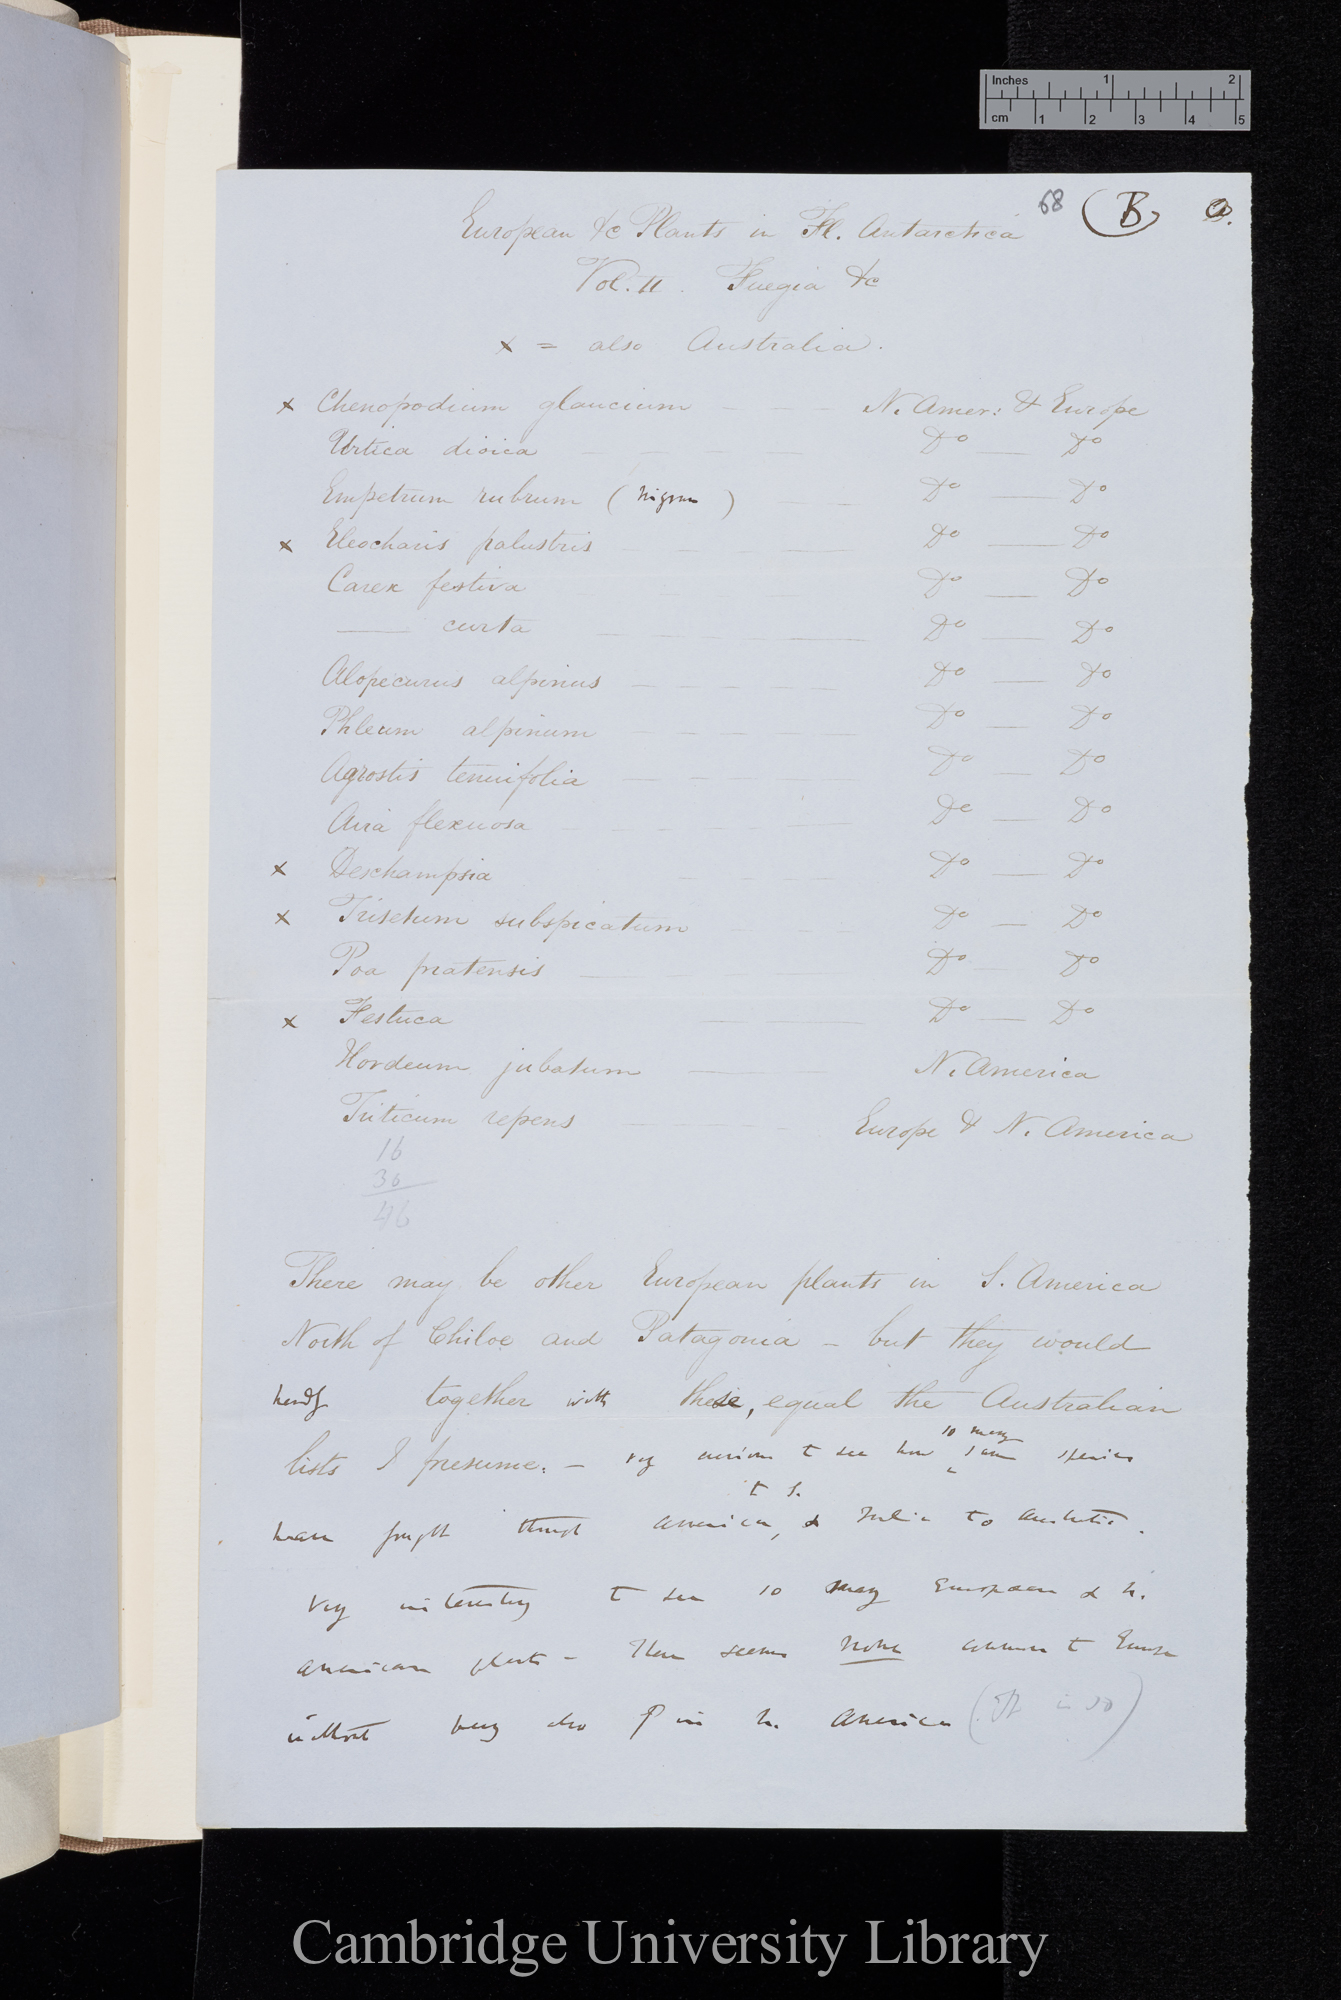 Inches 1 2
cm 1 2 3 4 5
68 B a.
European &c Plants in Fl. Antarctica
Vol. II. Fuegia &c
x = also Australia.
x Chenopodium glaucium N. Amer: & Europe
Urtica dioica Do Do
Empetrum rubrum (nigrum) Do Do
x Eleocharis palustris Do Do
Carex festiva Do Do
— curta Do Do
Alopecurus alpinus Do Do
Phleum alpinum Do Do
Agrostis tenuifolia Do Do
Aira flexuosa Do Do
x Deschampsia Do Do
x Trisetum subspicatum Do Do
Poa pratensis Do Do
x Festuca Do Do
Hordeum jubatum N. America
Triticum repens Europe & N. America
16
30
46
There may be other European plants in S. America
North of Chiloe and Patagonia – but they would
hardly together with these, equal the Australian
lists I presume. – very curious to see how so many same species
have through America, & India to Australia.
to S.
Very interesting to see so many European & N.
American plants – There seems none common to Europe
without being also in N. America
Cambridge University Library